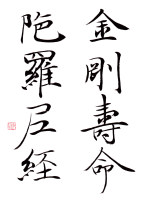 金剛壽命
陀羅尼経